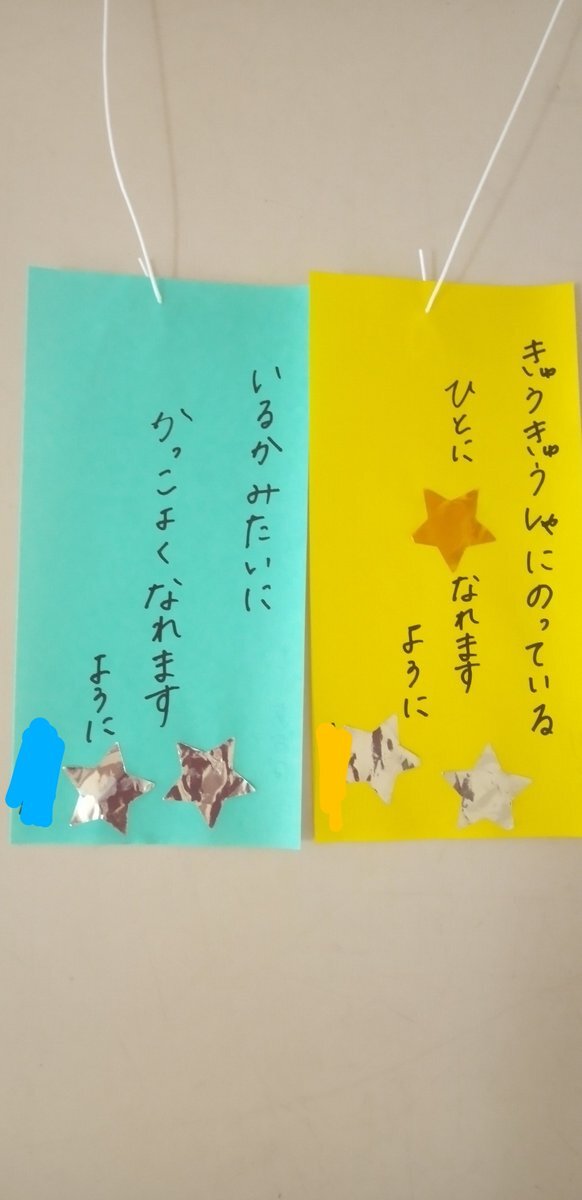 きゅうきゅうしゃにのっている
ひとに
なれます
ように
いるかみたいに
かっこよくなれます
ように